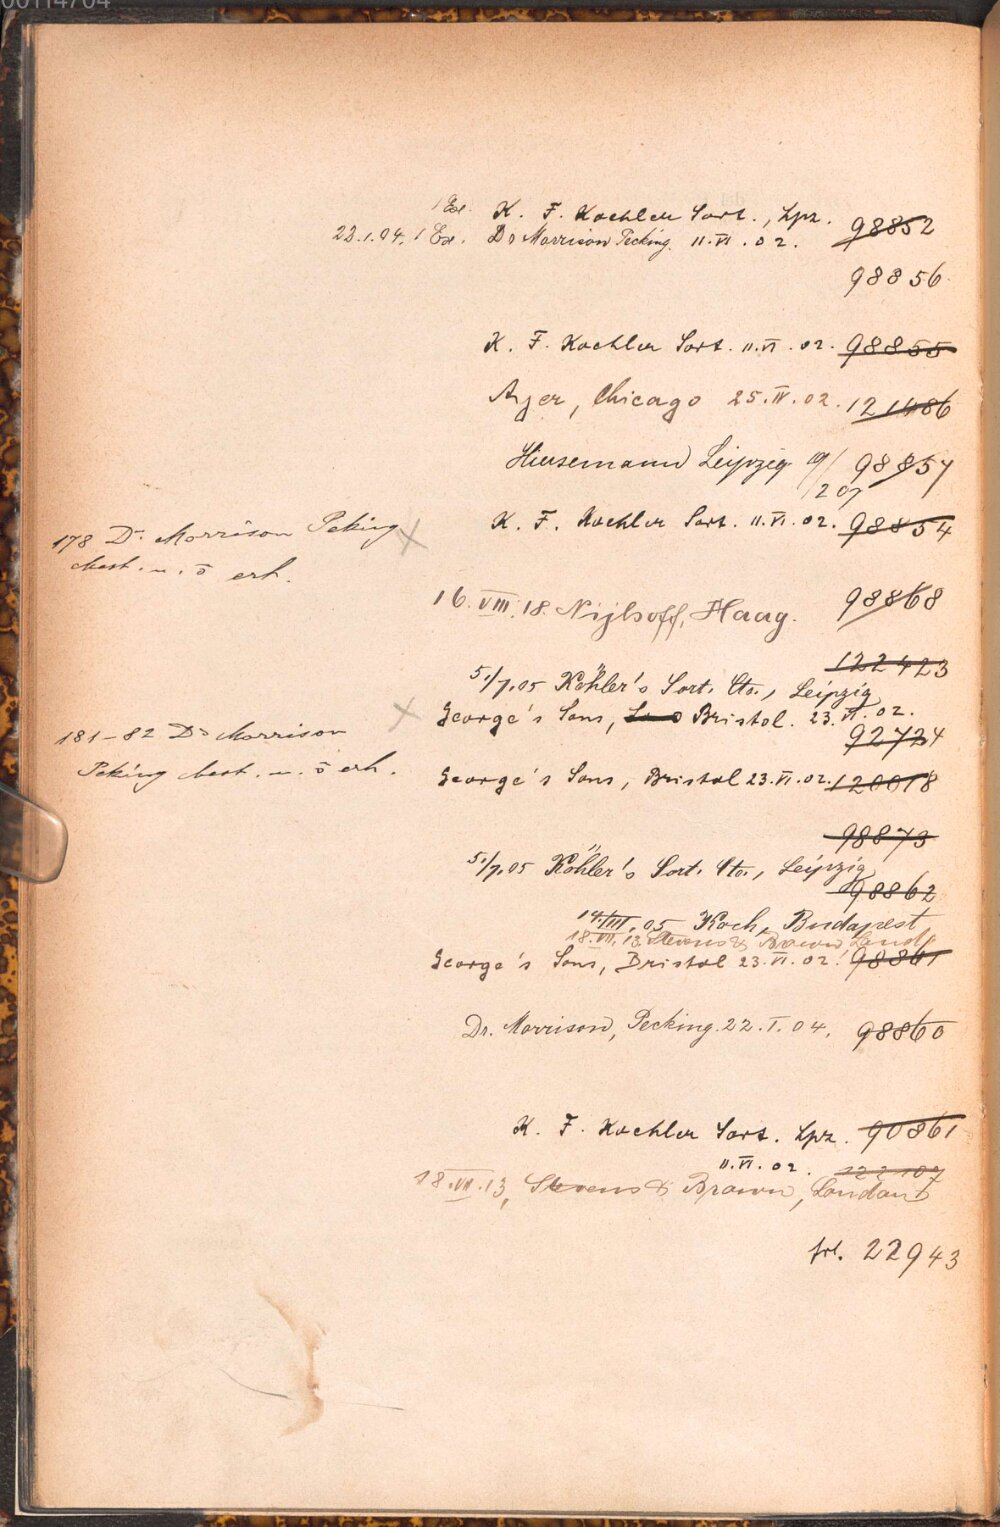 00114704
1 Ex. K. F. Koehler Sort., Lpz. 98852
22.1.04. 1 Ex. Dr Morrison Pecking. 11.VI.02.
98856
K. F. Koehler Sort. 11.VI.02. 98855
Ayer, Chicago 25.IV.02. 121486
Hiersemann Leipzig 19/ 98857
/2 07
K. F. Koehler Sort. 11.VI.02. 98854
178 Dr. Morrison Peking ×
best. u. ō erh.
16.VIII.18. Nijhoff, Haag. 98868
122423
5./7.05 Köhler's Sort. Cto., Leipzig
George's Sons, Bristol. 23.VI.02.
92724
181–82 Dr Morrison ×
Peking best. u. ō erh.
George's Sons, Bristol 23.VI.02. 120018
98873
5./7.05 Köhler's Sort. Cto., Leipzig
98862
14./III.05 Koch, Budapest
18.VII.13. Stevens & Brown Lond.
George's Sons, Bristol 23.VI.02. 98861
Dr. Morrison, Pecking. 22.I.04. 98860
K. F. Koehler Sort. Lpz. 90861
11.VI.02. 122107
18.VII.13, Stevens & Brown, London
frl. 22943